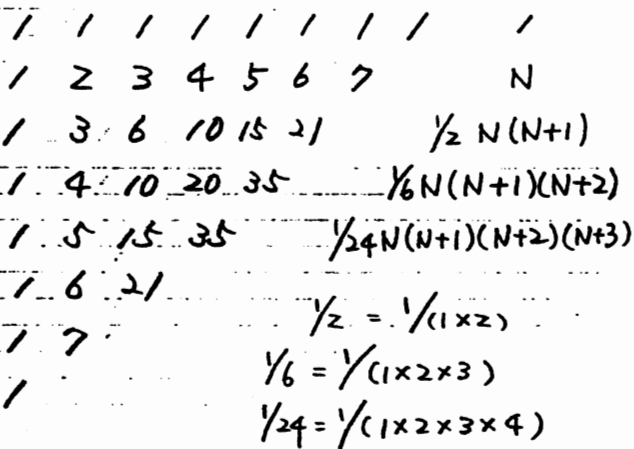 1 1 1 1 1 1 1 1 1
1 2 3 4 5 6 7 N
1 3 6 10 15 21 1/2 N(N+1)
1 4 10 20 35 1/6N(N+1)(N+2)
1 5 15 35 1/24N(N+1)(N+2)(N+3)
1 6 21
1/2 = 1/(1×2)
1 7
1/6 = 1/(1×2×3)
1
1/24 = 1/(1×2×3×4)